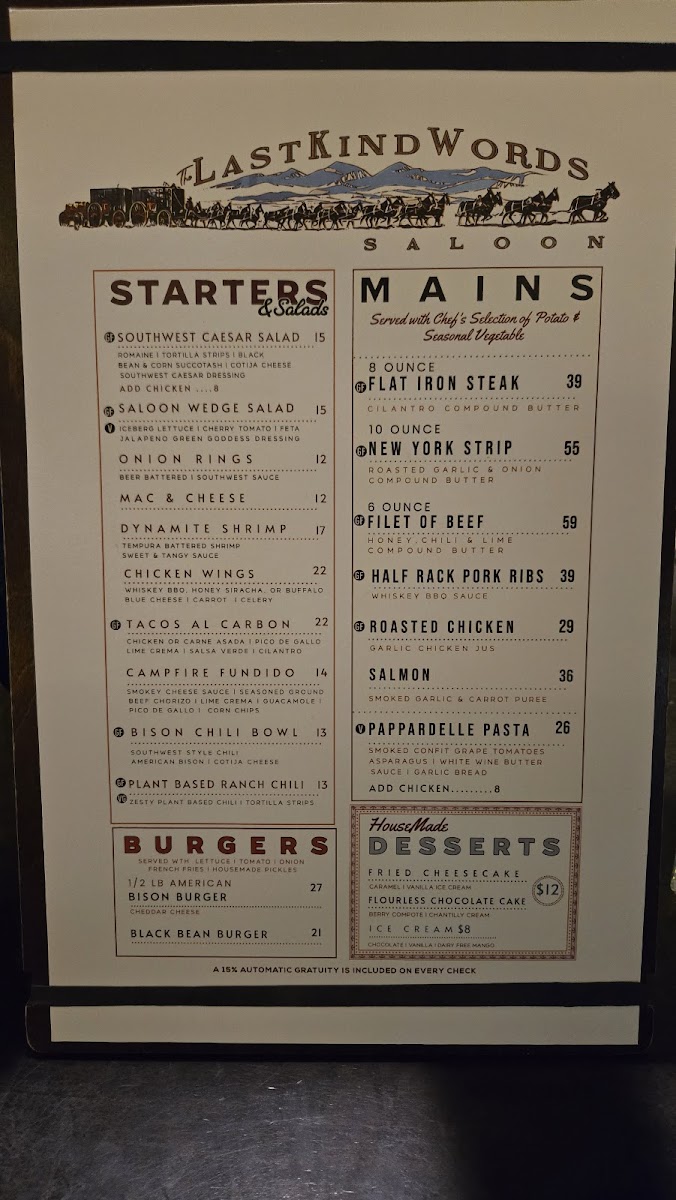 The Last Kind Words
SALOON
STARTERS
& Salads
GF SOUTHWEST CAESAR SALAD 15
ROMAINE | TORTILLA STRIPS | BLACK
BEAN & CORN SUCCOTASH | COTIJA CHEESE
SOUTHWEST CAESAR DRESSING
ADD CHICKEN ....8
GF SALOON WEDGE SALAD 15
V ICEBERG LETTUCE | CHERRY TOMATO | FETA
JALAPENO GREEN GODDESS DRESSING
ONION RINGS 12
BEER BATTERED | SOUTHWEST SAUCE
MAC & CHEESE 12
DYNAMITE SHRIMP 17
TEMPURA BATTERED SHRIMP
SWEET & TANGY SAUCE
CHICKEN WINGS 22
WHISKEY BBQ, HONEY SIRACHA, OR BUFFALO
BLUE CHEESE | CARROT | CELERY
GF TACOS AL CARBON 22
CHICKEN OR CARNE ASADA | PICO DE GALLO
LIME CREMA | SALSA VERDE | CILANTRO
CAMPFIRE FUNDIDO 14
SMOKEY CHEESE SAUCE | SEASONED GROUND
BEEF CHORIZO | LIME CREMA | GUACAMOLE |
PICO DE GALLO | CORN CHIPS
GF BISON CHILI BOWL 13
SOUTHWEST STYLE CHILI
AMERICAN BISON | COTIJA CHEESE
GF PLANT BASED RANCH CHILI 13
VG ZESTY PLANT BASED CHILI | TORTILLA STRIPS
BURGERS
SERVED WTH LETTUCE | TOMATO | ONION
FRENCH FRIES | HOUSEMADE PICKLES
1/2 LB AMERICAN
BISON BURGER 27
CHEDDAR CHEESE
BLACK BEAN BURGER 21
MAINS
Served with Chef's Selection of Potato &
Seasonal Vegetable
8 OUNCE
GF FLAT IRON STEAK 39
CILANTRO COMPOUND BUTTER
10 OUNCE
GF NEW YORK STRIP 55
ROASTED GARLIC & ONION
COMPOUND BUTTER
6 OUNCE
GF FILET OF BEEF 59
HONEY, CHILI & LIME
COMPOUND BUTTER
GF HALF RACK PORK RIBS 39
WHISKEY BBQ SAUCE
GF ROASTED CHICKEN 29
GARLIC CHICKEN JUS
SALMON 36
SMOKED GARLIC & CARROT PUREE
V PAPPARDELLE PASTA 26
SMOKED CONFIT GRAPE TOMATOES
ASPARAGUS | WHITE WINE BUTTER
SAUCE | GARLIC BREAD
ADD CHICKEN.........8
HouseMade
DESSERTS
FRIED CHEESECAKE
CARAMEL | VANILLA ICE CREAM
$12
FLOURLESS CHOCOLATE CAKE
BERRY COMPOTE | CHANTILLY CREAM
ICE CREAM $8
CHOCOLATE | VANILLA | DAIRY FREE MANGO
A 15% AUTOMATIC GRATUITY IS INCLUDED ON EVERY CHECK